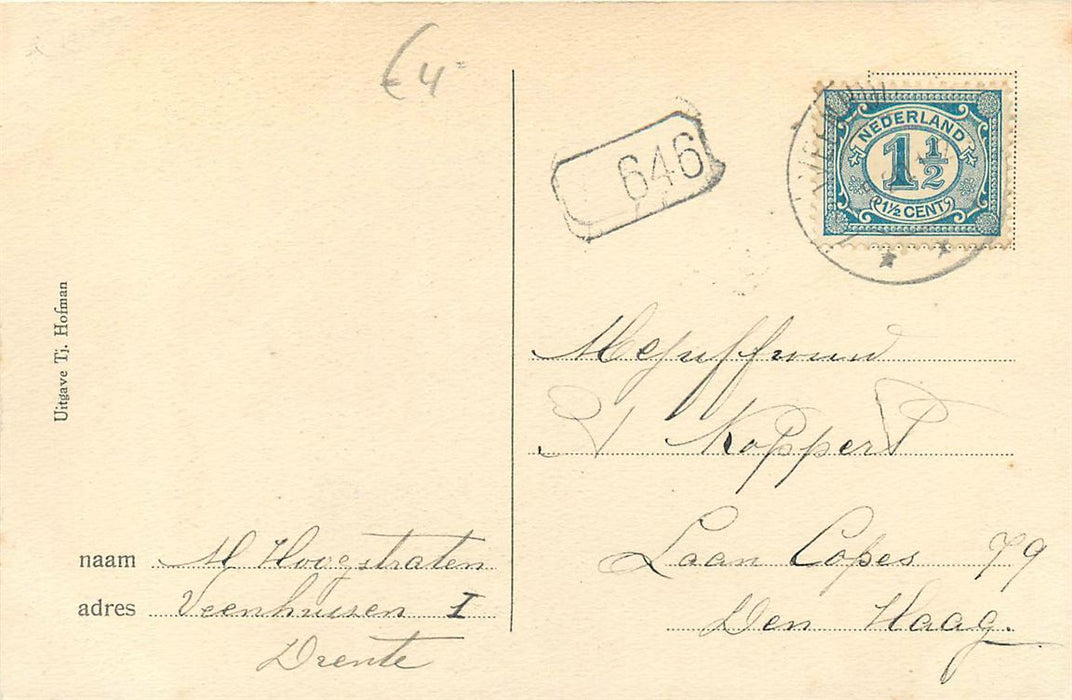 € 4=
646
NEDERLAND
1 1/2
1½ CENT
Uitgave Tj. Hofman
Mejuffrouw
A Koppert
Laan Copes 79
Den Haag.
naam M Hoogstraten
adres Veenhuisen I
Drente